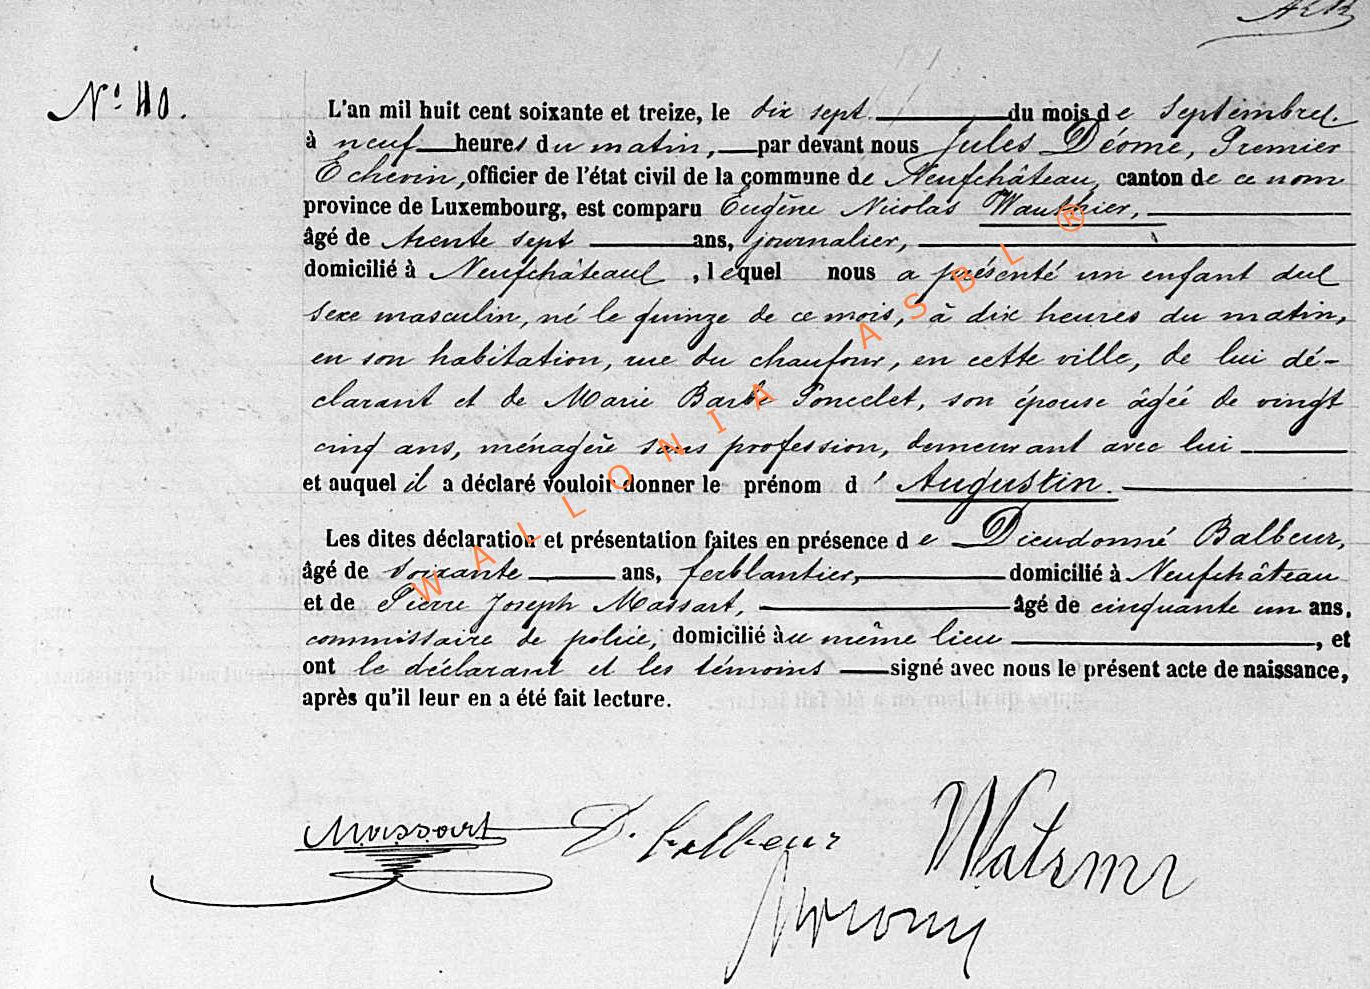 N° 40.
L'an mil huit cent soixante et treize, le dix sept du mois de Septembre
à neuf heures du matin, par devant nous Jules Déome, Premier
Echevin, officier de l'état civil de la commune de Neufchâteau, canton de ce nom
province de Luxembourg, est comparu Eugène Nicolas Wauthier,
âgé de trente sept ans, journalier,
domicilié à Neufchâteau, lequel nous a présenté un enfant du
sexe masculin, né le quinze de ce mois, à dix heures du matin,
en son habitation, rue du chaufour, en cette ville, de lui dé-
clarant et de Marie Barbe Poncelet, son épouse âgée de vingt
cinq ans, ménagère sans profession, demeurant avec lui
et auquel il a déclaré vouloir donner le prénom d'Augustin.
Les dites déclaration et présentation faites en présence de Dieudonné Balbeur,
âgé de soixante ans, ferblantier, domicilié à Neufchâteau
et de Pierre Joseph Massart, âgé de cinquante un ans,
commissaire de police, domicilié au même lieu, et
ont le déclarant et les témoins signé avec nous le présent acte de naissance,
après qu'il leur en a été fait lecture.
Massart D. Balbeur
WALLONIA ASBL ®